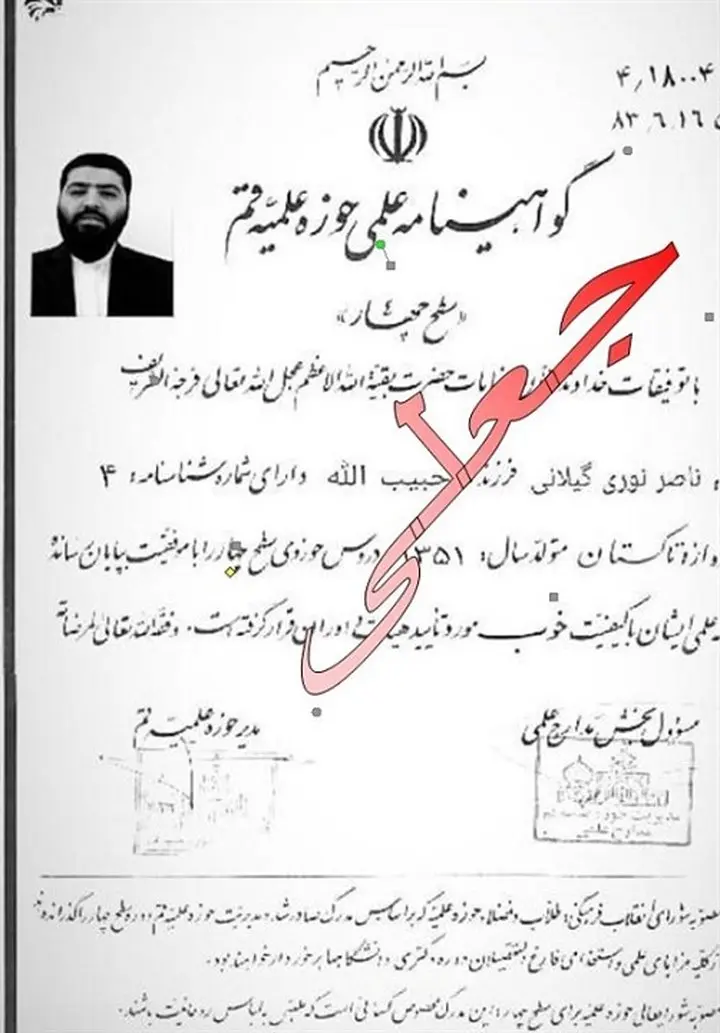 بسم الله الرحمن الرحیم
۴٫۱۸۰۰۴
۸۳٫۶٫۱۶
گواهینامه علمی حوزه علمیه قم
«سطح چهار ۴»
با توفیقات خداوند عنایات حضرت بقیة الله الاعظم عجل الله تعالی فرجه الشریف
ناصر نوری گیلانی فرزند حبیب الله دارای شماره شناسنامه: ۴
تاکستان متولد سال: ۱۳۵۱ دروس حوزوی سطح چهار را با موفقیت بپایان رسانده
علمی ایشان با کیفیت خوب مورد تأیید قرار گرفته است. وفقه الله تعالی لمرضاته
جعلی
مسؤول بخش مدارج علمی
مدیر حوزه علمیه قم
مدیریت حوزه علمیه قم
مدارج علمی
مصوبه شورای انقلاب فرهنگی: طلاب و فضلاء حوزه علمیه که بر اساس مدرک صادر شده مدیریت حوزه علمیه قم دوره سطح چهار را گذرانده
از کلیه مزایای علمی و استخدامی فارغ التحصیلان دوره دکتری دانشگاهها برخوردار خواهند بود.
مصوبه شورایعالی حوزه علمیه برای سطح چهار: این مدرک مخصوص کسانی است که ملبس به لباس روحانیت باشند.